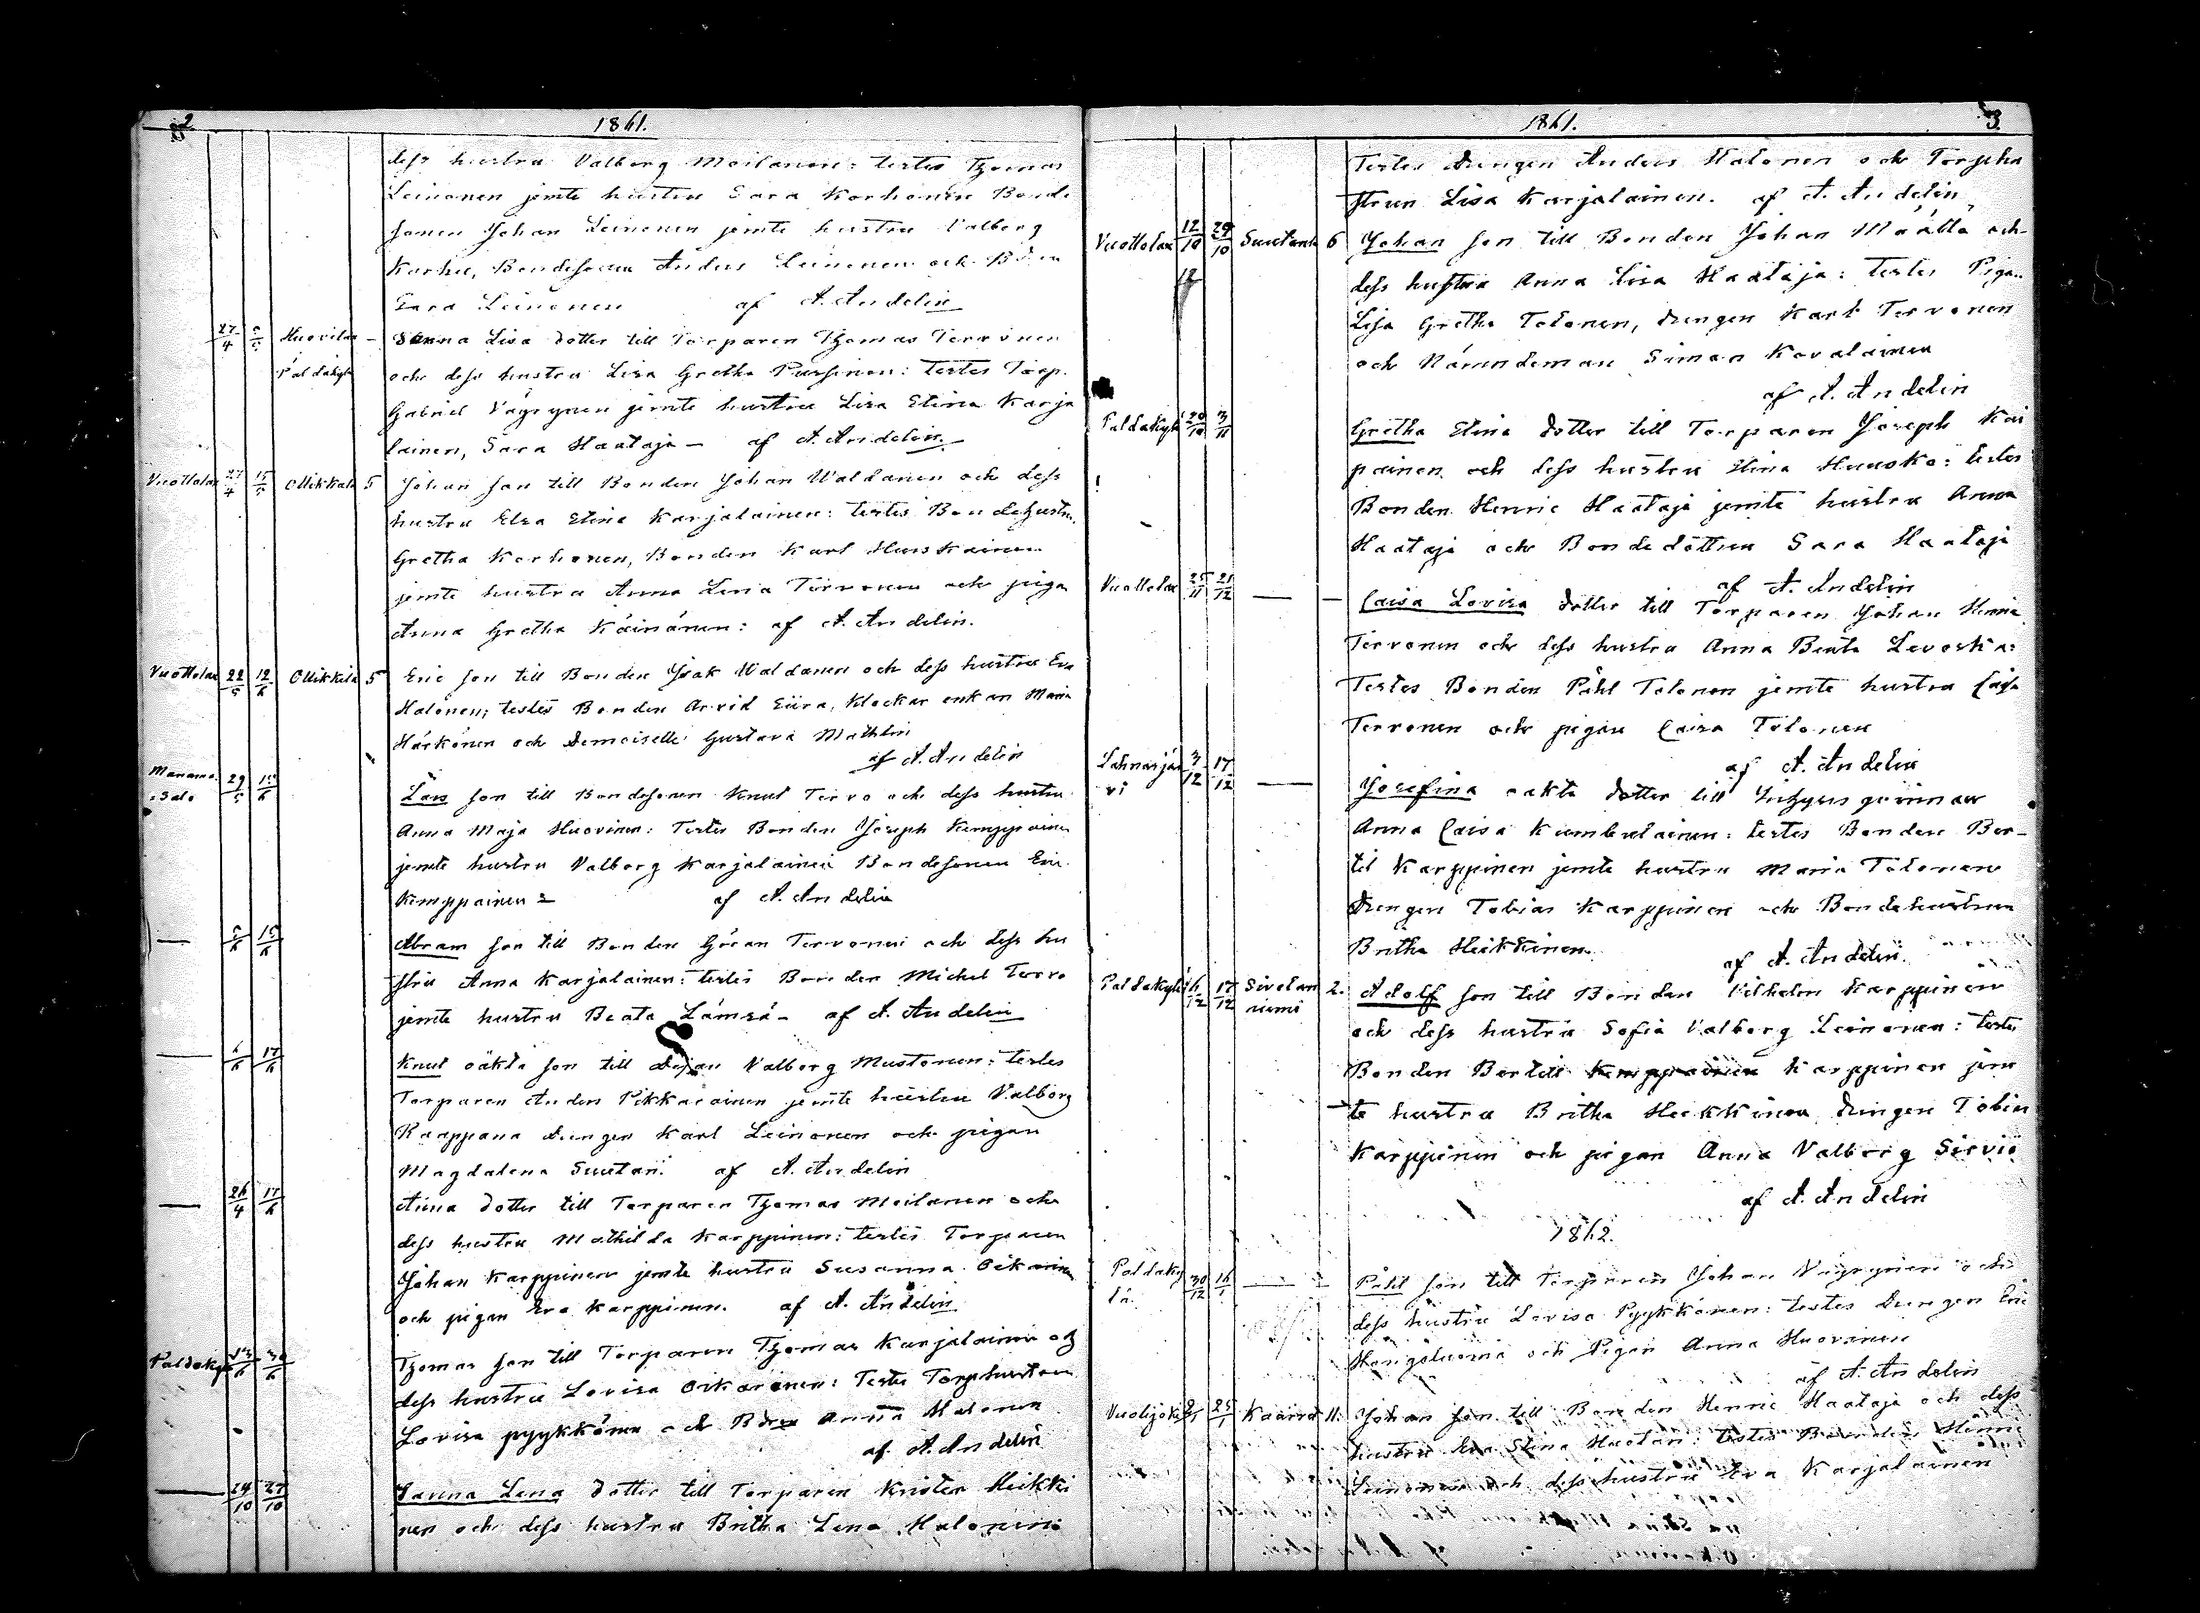 2
1861.
dess hustru Valborg Moilanen: testes Thomas
Leinonen jemte hustru Sara Korhonen Bonde
sonen Johan Leinonen jemte hustru Valborg
Karhu, Bondesonen Anders Leinonen och
Sara Leinonen af A. Andelin
27/4 Huovila - Sanna Lisa dotter till Torparen Thomas Tervonen
Paldakylä och dess hustru Lisa Gretha Pursinen: testes Torp.
Gabriel Väyrynen jemte hustru Lisa Stina Karja
lainen, Sara Haataja - af A. Andelin.
Vuottolax 27/4 15/5 Ollikkala 5 Johan son till Bonden Johan Waldanen och dess
hustru Elsa Stina Karjalainen: testes Bondehustr.
Gretha Korhonen, Bonden Karl Huuskainen
jemte hustru Anna Lena Tervonen och piga
Anna Gretha Käinänen: af A. Andelin.
Vuottolax 22/5 12/6 Ollikkala 5 Eric son till Bonden Isak Waldanen och dess hustru Eva
Halonen; testes Bonden Arvid Eiira, Klockar enkan Maria
Härkönen och Demoiselle Gustava Mathlin
af A. Andelin
Manama
salo 29/5 15/6 Lars son till Bondesonen Knut Tervo och dess hustru
Anna Maja Huovinen: Testes Bonden Joseph Kemppainen
jemte hustru Valborg Karjalainen Bondesonen Eric
Kemppainen = af A. Andelin
— 5/6 15/6 Abram son till Bonden Göran Tervonen och dess hu
stru Anna Karjalainen: testes Bonden Michel Tervo
jemte hustru Beata Lämsä - af A. Andelin
— 6/6 17/6 Knut oäkta son till Valborg Mustonen: testes
Torparen Anders Pikkarainen jemte hustru Valborg
Raappana drengen Karl Leinonen och pigan
Magdalena Suutari. af A. Andelin
— 26/4 17/6 Anna dotter till Torparen Thomas Moilanen och
dess hustru Mathilda Karppinen: testes Torparen
Johan Karppinen jemte hustru Susanna Oikarinen
och pigan Eva Karppinen. af A. Andelin
Paldakyl Thomas son till Torparen Thomas Karjalainen och
dess hustru Lovisa Oikarinen: Testes Torphustrun
Lovisa pyykkönen och Anna Halonen
af A. Andelin
— 24/10 27/10 Sanna Lena dotter till Torparen Krister Heikki
nen och dess hustru Britha Lena Halonen:
1861.
3
Testes Drengen Anders Halonen och Torphu
strun Lisa Karjalainen. af A. Andelin
Vuottolax 12/10 29/10 6 Johan son till Bonden Johan Määttä och
dess hustru Anna Lisa Haataja: testes Pigan
Lisa Gretha Tolonen, drengen Karl Tervonen
och Nämndeman Simon Kovalainen
af A. Andelin
Paldakyl 20/10 3/11 Gretha Stina dotter till Torparen Joseph Kai
painen och dess hustru Stina Huusko: testes
Bonden Henric Haataja jemte hustru Anna
Haataja och Bondedöttren Sara Haataja
af A. Andelin
Vuottolax 25/11 21/12 — — Caisa Lovisa dotter till Torparen Johan Henric
Tervonen och dess hustru Anna Beata Levoska:
Testes Bonden Påhl Tolonen jemte hustru Cajsa
Tervonen och pigan Caisa Tolonen
af A. Andelin
Lahnasjär
vi 3/12 17/12 — Josefina oakta dotter till Inhyses qvinnan
Anna Caisa Kumbulainen: testes Bonden Ber-
til Karppinen jemte hustru Maria Tolonen
Drengen Tobias Karppinen och Bondehustrun
Britha Heikkinen. af A. Andelin.
Paldakyl 6/12 17/12 Sivolan
niemi 2. Adolf son till Bonden Vilhelm Karppinen
och dess hustru Sofia Valborg Leinonen: testes
Bonden Bertill Kemppainen Karppinen jem
te hustru Britha Heikkinen drengen Tobias
Karppinen och pigan Anna Valborg Sirviö
af A. Andelin
1862.
Paldaky
lä. 30/12 16/1 — — Påhl son till Torparen Johan Väyrynen och
dess hustru Lovisa Pyykkönen: testes Drengen Eric
och Pigan Anna Huovinen
af A. Andelin
Vuolijoki 25/1 11. Johan son till Bonden Henric Haataja och dess
hustru Eva Stina Huotari: testes Bonden Henric
Leinonen och dess hustru Eva Karjalainen